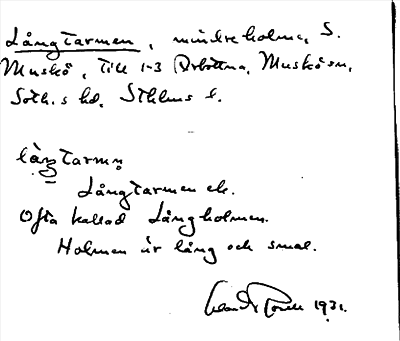 Långtarmen, mindre holme, S.
Muskö, till 1-3 Arbottna, Muskö sn,
Soth.s hd, Sthlms l.
långtarmn
Långtarmen ek.
Ofta kallad Långholmen.
Holmen är lång och smal.
1931.